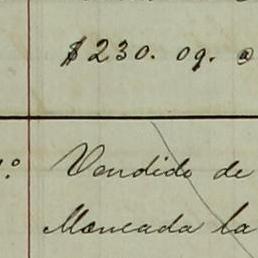 $230.09. @
1.º Vendido de
Moncada la